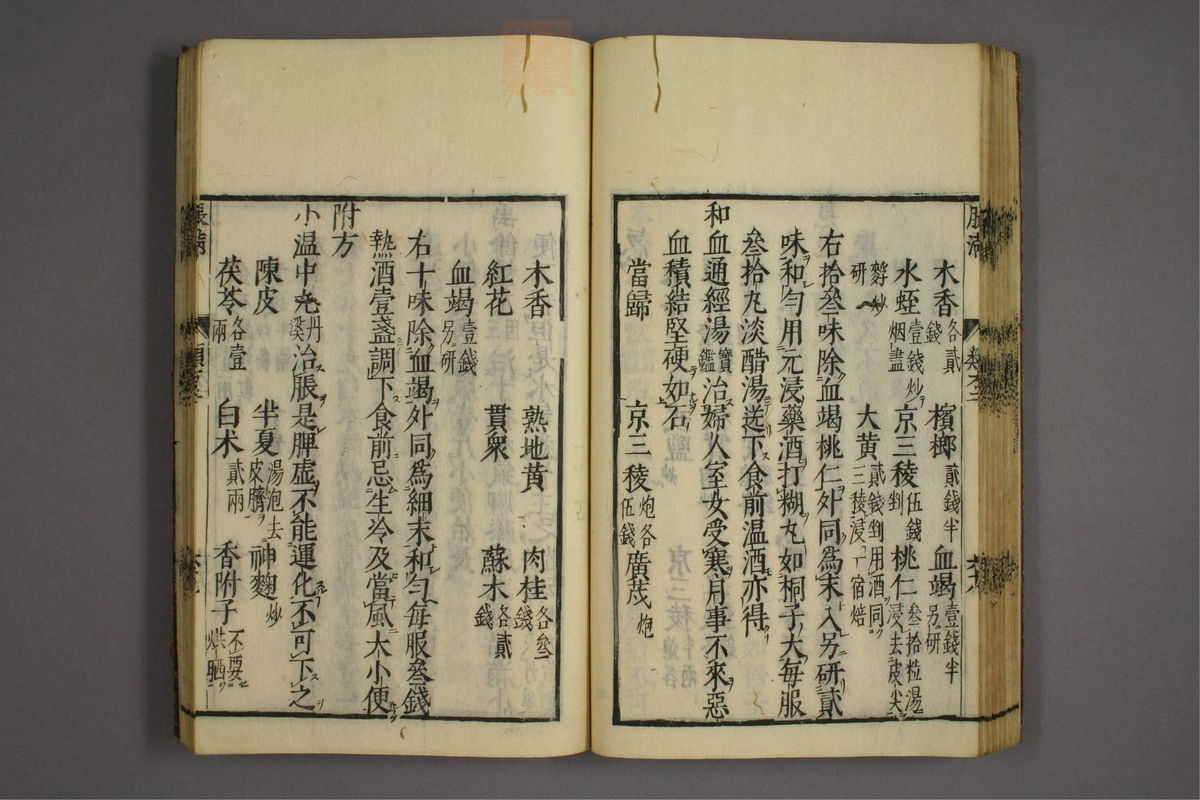 脹滿
木香各貳錢 檳榔貳錢半 血竭壹錢半另研
水蛭壹錢炒烟盡 京三稜伍錢剉 桃仁叁拾粒湯浸去皮尖
麩炒研 大黄貳錢剉用酒同三稜浸一宿焙
右拾叁味除血竭桃仁外同為末入另研貳
味和勻用元浸藥酒打糊丸如桐子大每服
叁拾丸淡醋湯送下食前温酒亦得
和血通經湯寳鑑治婦人室女受寒月事不來惡
血積結堅硬如石
當歸 京三稜炮各伍錢 廣茂炮
木香 熟地黄 肉桂各叁錢
紅花 貫衆 蘇木各貳錢
血竭壹錢另研
右十味除血竭外同為細末和勻每服叁錢
熱酒壹盞調下食前忌生冷及當風大小便
附方
小温中丸丹溪治脹是脾虛不能運化不可下之
陳皮 半夏湯泡去皮臍 神麴炒
茯苓各壹兩 白术貳兩 香附子不要烘晒
脹滿